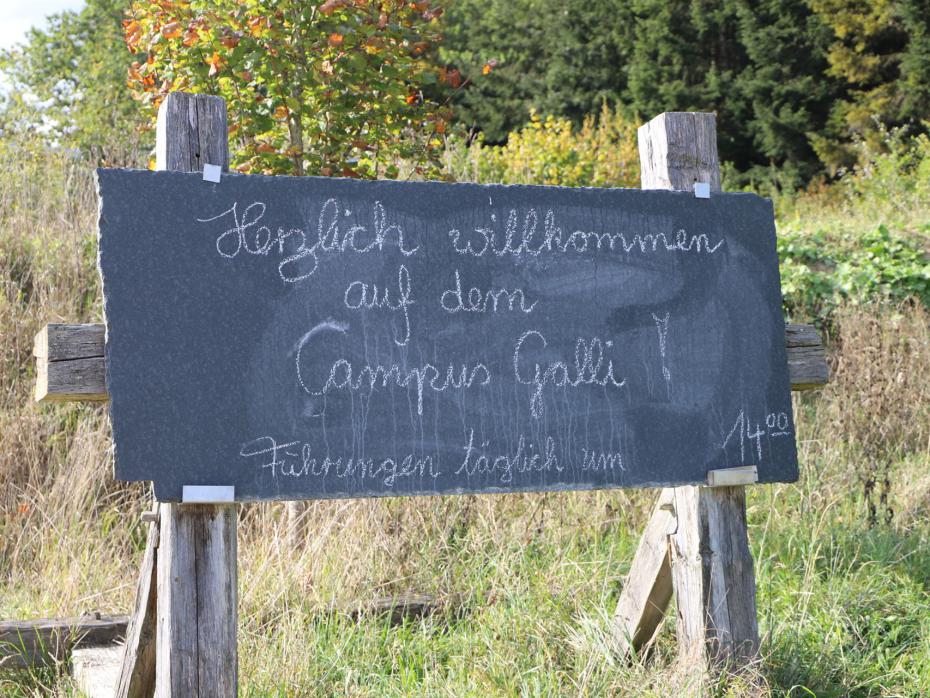 Herzlich willkommen
auf dem
Campus Galli !
Führungen täglich um 14⁰⁰